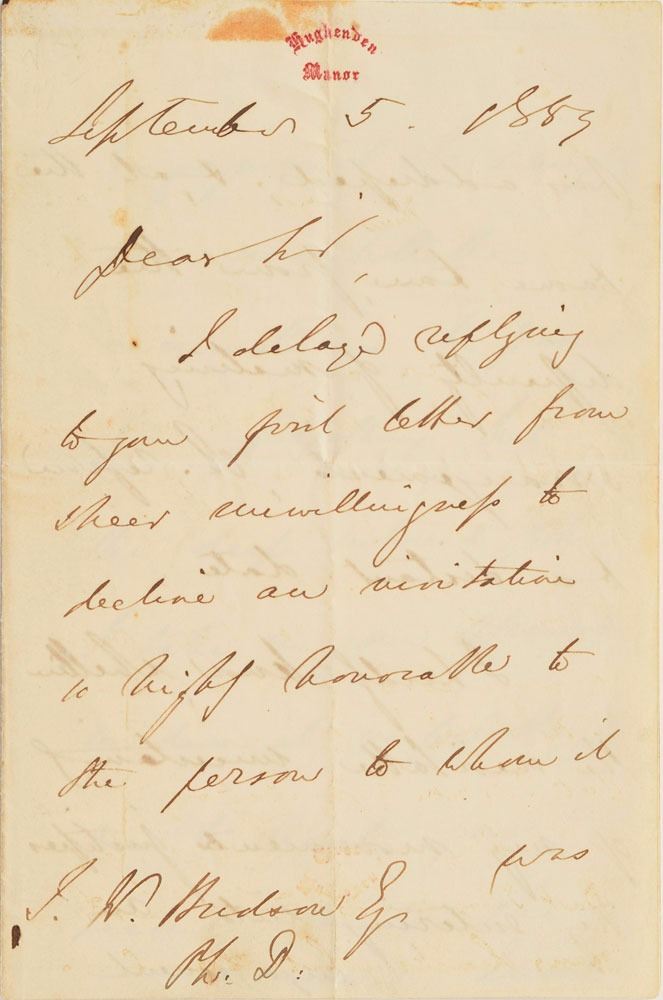 Hughenden
Manor
September 5. 1853
Dear Sir,
I delayed replying
to your first letter from
sheer unwillingness to
decline an invitation
so highly honorable to
the person to whom it
was
J. W. Hudson Esqr
Ph. D.